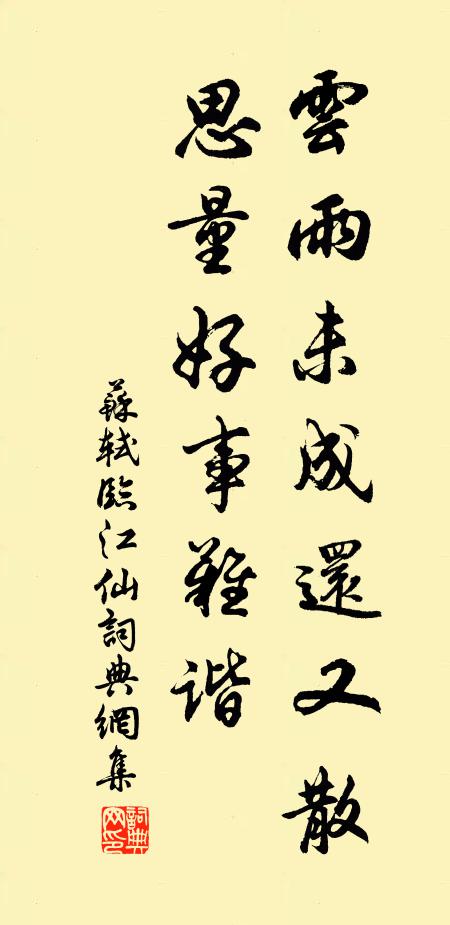 雲雨未成還又散
思量好事難谐
蘇軾臨江仙詞典網集
詞典網印